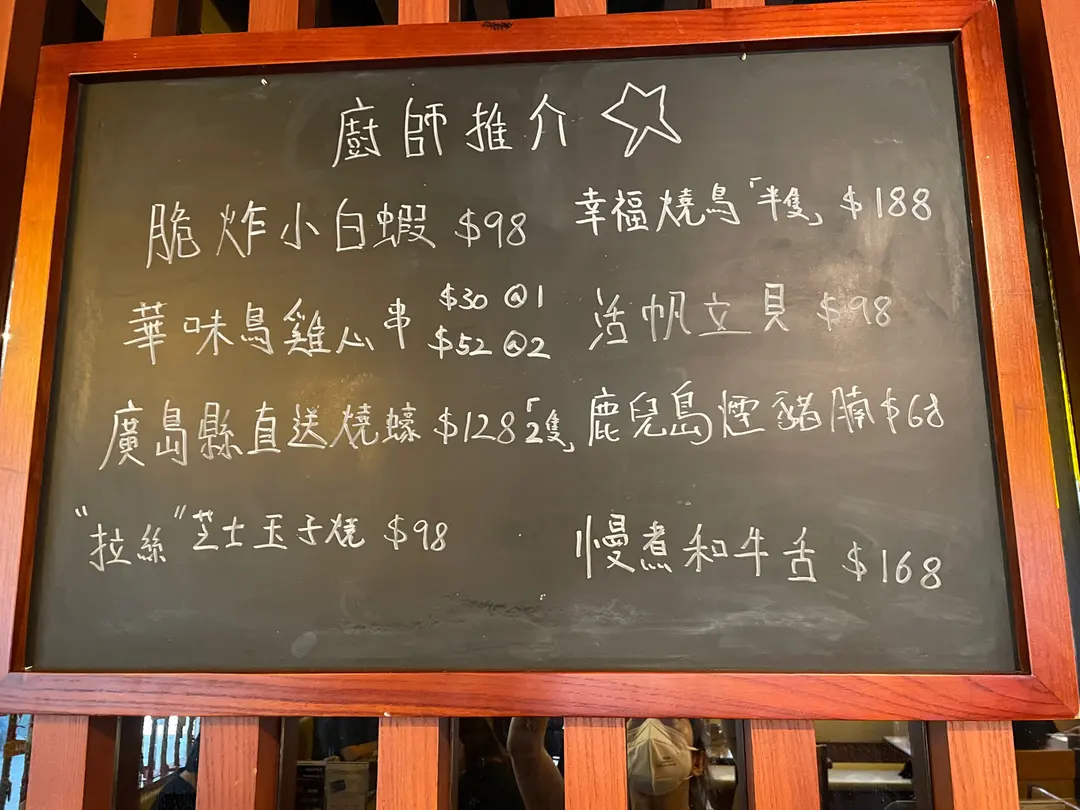 廚師推介
脆炸小白蝦 $98
華味鳥雞心串 $30 @1
$52 @2
廣島縣直送燒蠔 $128「2隻」
"拉絲"芝士玉子燒 $98
幸福燒鳥「半隻」 $188
活帆立貝 $98
鹿兒島煙豬腩 $68
慢煮和牛舌 $168